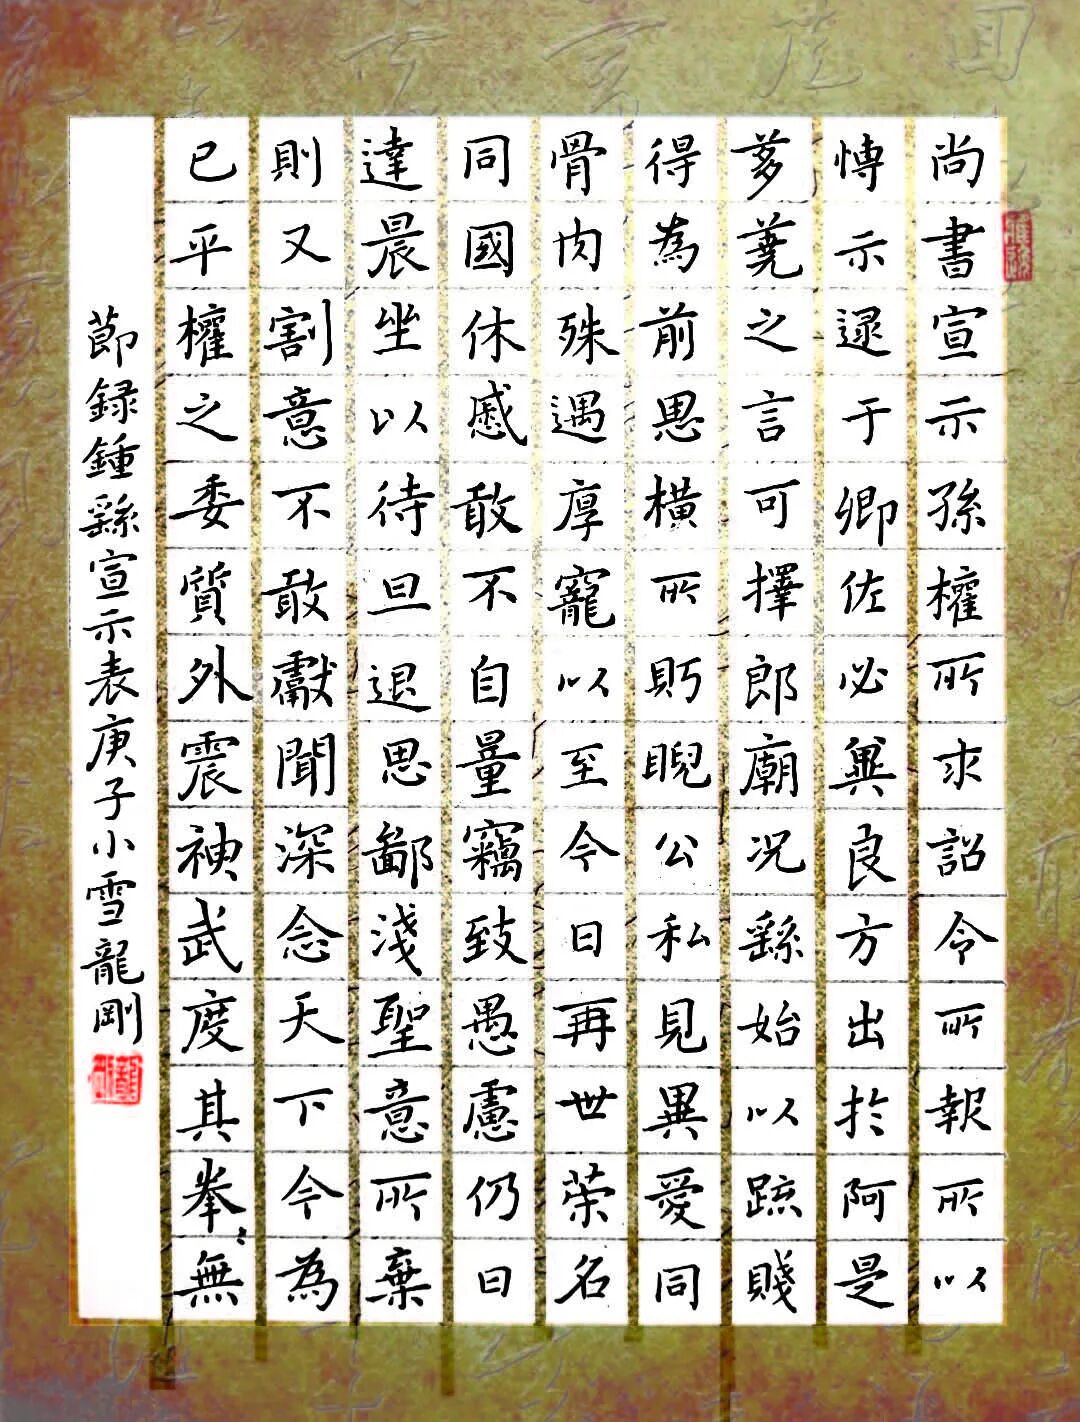 尚書宣示孫權所求詔令所報所以
愽示逯于卿佐必兾良方出於阿是
芻蕘之言可擇郎廟况繇始以疏賤
得為前恩橫所眄睨公私見異愛同
骨肉殊遇厚寵以至今日再世榮名
同國休慼敢不自量竊致愚慮仍日
達晨坐以待旦退思鄙淺聖意所棄
則又割意不敢獻聞深念天下今為
已平權之委質外震神武度其拳〻無
節録鍾繇宣示表庚子小雪龍剛